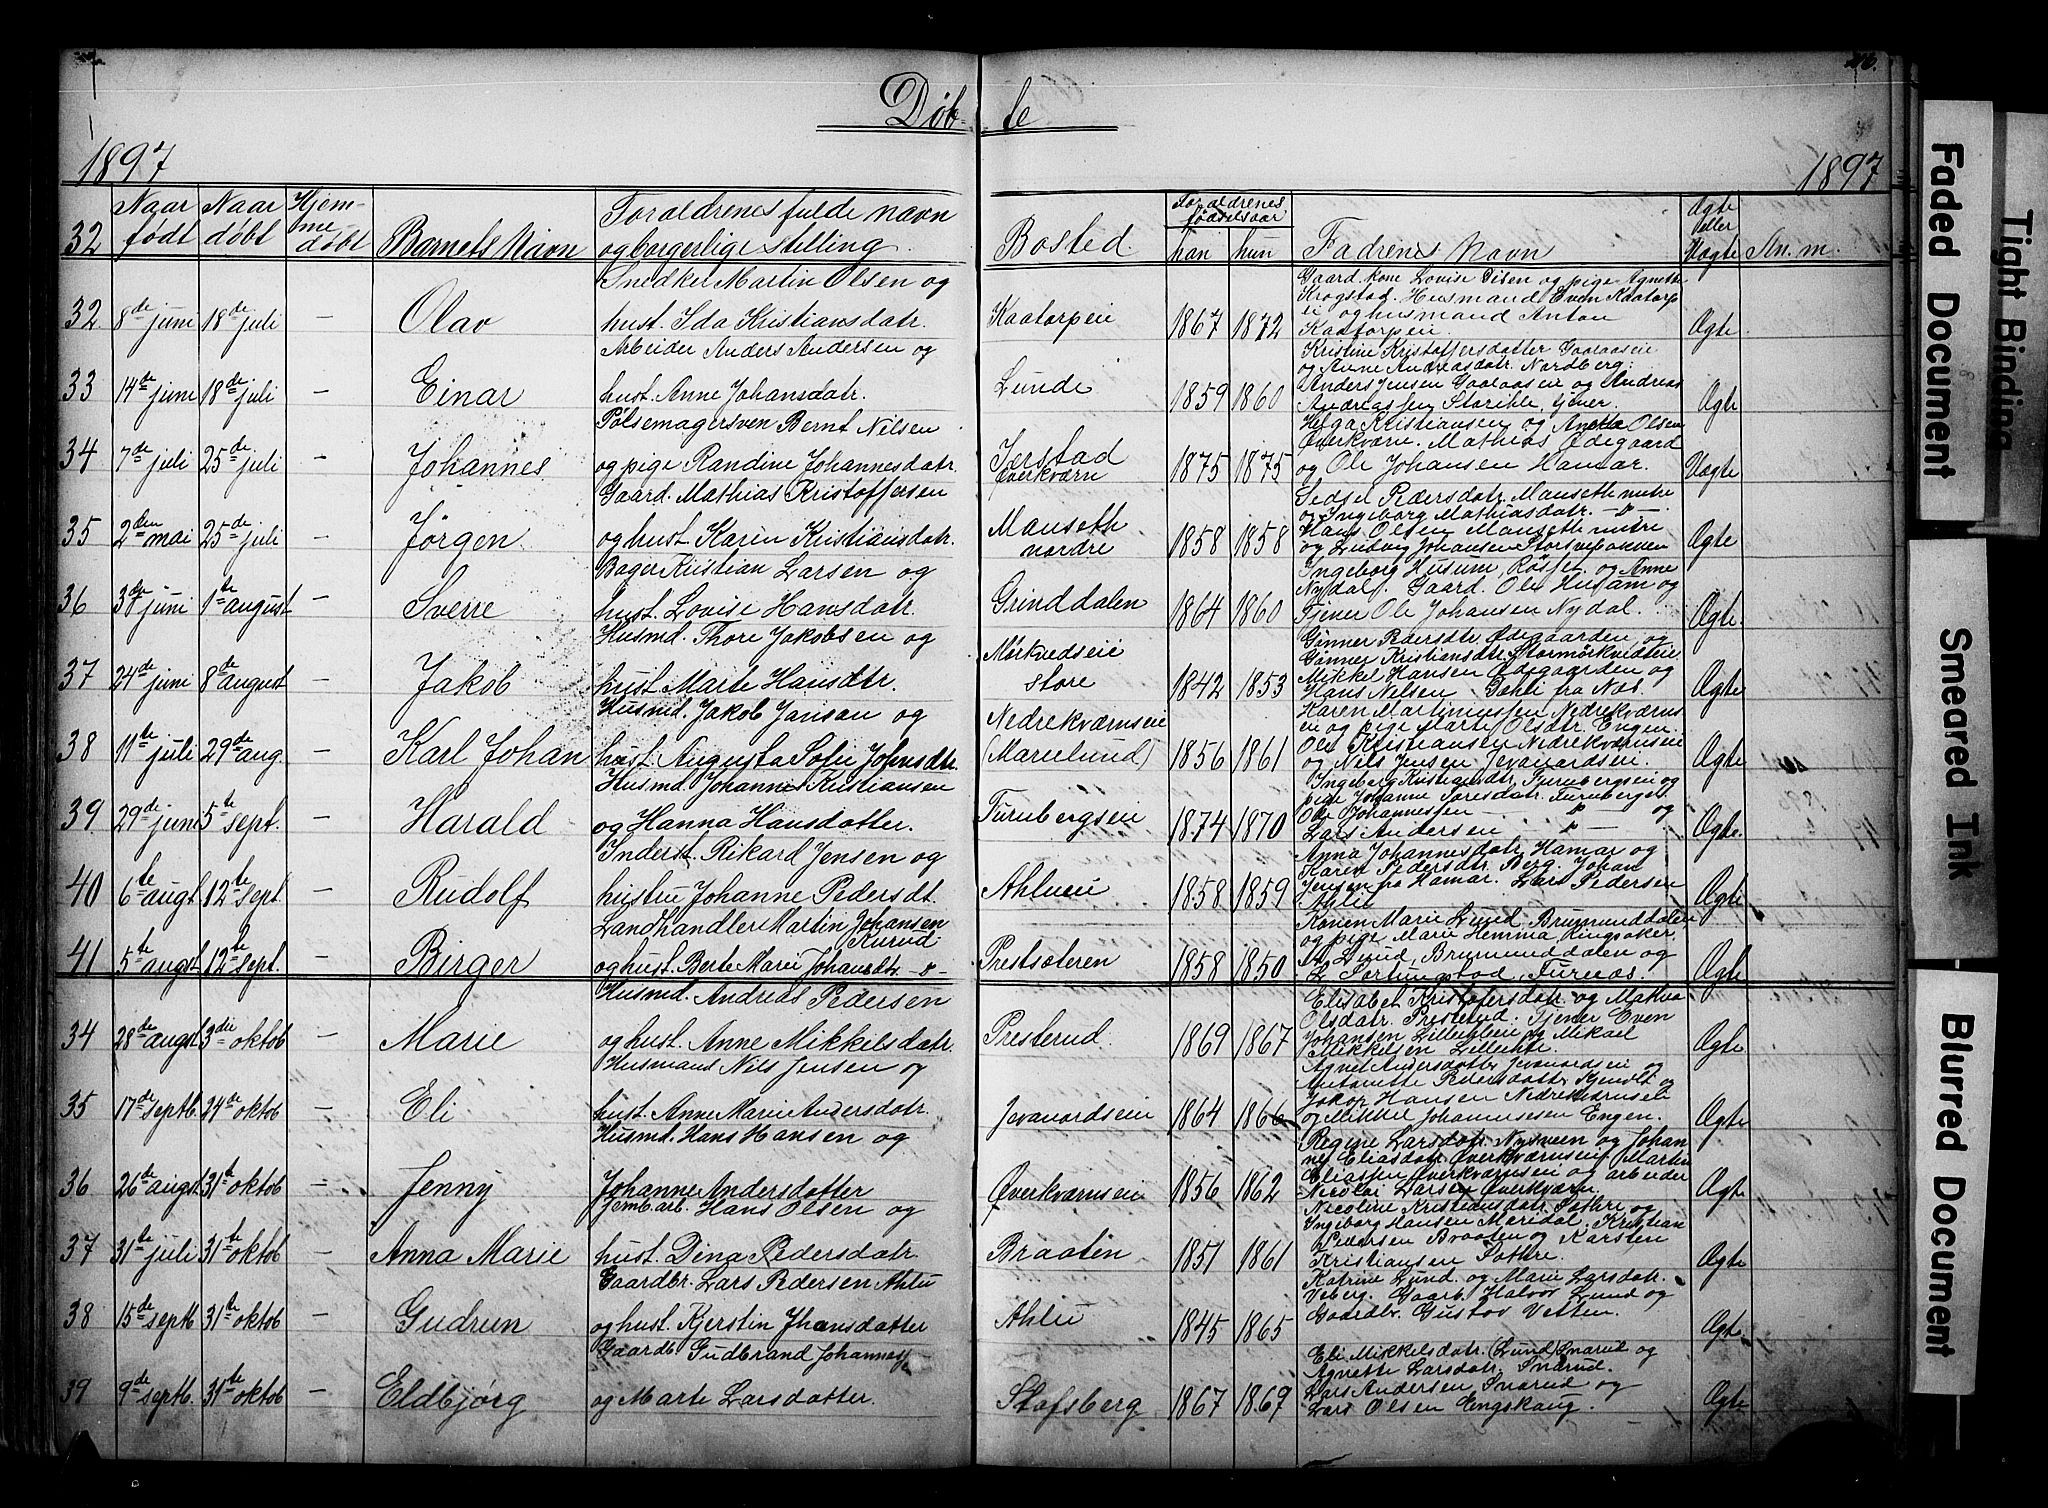 Døb- te
1897 1897
32 Naar født Naar døbt Hjem-me døbt Barnets Navn Foraldrenes fulde navn og borgerlige stilling. Bosted. Foraldrenes fødselsaar han hun Fadrenes Navn Ægte eller Uægte An. m.
Snedker Martin Olsen og Gaard. kone Lovise Olsen og pige Agnette
Krogstad. Husmand Even Kaatorp
32. 8de juni 18de juli – Olav hust. Ida Kristiansdatr. Kaatorpeie 1867 1872 ei og husmand Anton Ægte
Kaatorpeie.
Arbeider Anders Andersen og Kristine Kristoffersdatter Gaaraaseie
og Anne Andreasdatr. Nordberg.
33 14de juni 18de juli – Einar hust. Anne Johansdatr. Lunde 1859 1860 Anders Jensen Gaaraaseie og Andreas Ægte
Andreassen Storihle, tjener.
Pølsemagersven Bernt Nilsen Helga Kristiansen og Anette Olsen
Øverkværn. Mathias Ødegaard
34 7de juli 25de juli – Johannes og pige Randine Johannesdatr. Jerstad Øverkværn 1875 1875 og Ole Johansen Hamar. Uægte
Gaard. Mathias Kristoffersen Sedsel Pedersdatr. Manseth nutre
og Ingeborg Mathiasdatr. –"–
35 2den mai 25de juli – Jørgen og hust. Karen Kristiansdatr. Manseth nordre 1858 1858 Hans Olsen Manseth nutre Ægte
og Ludvig Johansen
Bager Kristian Larsen og Ingeborg Husum, og Anne
Nydal. Gaard. Ole Husam og
36 3die juni 1ste august – Sverre hust. Lovise Hansdatr. Grinddalen 1864 1860 Tjener Ole Johansen Nydal. Ægte.
Husmd. Thore Jakobsen og Gunner Pedersdtr. Ødegaarden og
Gunner Kristiansdtr. Stormørkvedeie
37 24de juni 8de august – Jakob hust. Marte Hansdtr. Mørkvedseie store 1842 1853 Mikkel Hansen Ødegaarden og Ægte
Hans Nilsen Dæhli fra Næs.
Husmd. Jakob Jansan og Karen Martinussen Nedrekværns
ei og pige Marte Olsdtr. Engen.
38 11te juli 29de aug. – Karl Johan hust. Augusta Sofie Johnsdtr. Nedrekværnseie (Marielund) 1856 1861 Ole Kristiansen Nedrekværnseie Ægte
og Nils Jensen Jevanordseie.
Husmd. Johannes Kristiansen Ingeberg Kristiansdtr. Furubergseie og
pige Johanne Furuberget
39 29de juni 5te sept. – Harald og Hanna Hansdatter. Furubergseie 1874 1870 Ole Johannessen –"– og Ægte.
Lars Andersen –"–
Inderst. Rikard Jensen og Anna Johannesdatr. Hamar og
Karen Pedersdtr. Berg. Johan
40 6te augt 12te sept. – Rudolf hustru Johanne Pedersdt. Ahlueie 1858 1859 Jensen fra Hamar. Lars Pedersen Ægte
Ahlie
Landhandler Martin Johansen Kurud Konen Marie Lund Brumunddalen
og pige Marie Hemma, Ringsaker.
41 5te augst 12te sept. – Birger og hust. Berte Marie Johansdtr. –"– Prestsæteren 1858 1850 A. Lund, Brumunddalen og Ægte
L. Furnæs.
Husmd. Andreas Pedersen Elisabet Kristofersdatr. og Mathea
Olsdatr. Presterud. Tjener Even
34 28de augst 3die oktob – Marie og hust. Anne Mikkelsdatr. Presterud. 1869 1867 Johansen Lilleehlen og Mikael Ægte
Mikkelsen Lilleehle.
Husmans Nils Jensen og Agnet Andersdatter Jevanordseie og
Antonette Pedersdatter og
35 17de septb. 24de oktob – Eli hust. Anne Marie Andersdatr. Jevanordseie 1864 1866 Jakop Hansen Nedrekværnseie Ægte
og Mikkel Johannesesen Engen.
Husmd. Hans Hansen og Regine Larsdatr. Nysveen og Johan
ne Eliasdatr. Øverkværnseie. Martin
36 26de augst 31te oktob – Jenny Johanne Andersdatter Øverkværnseie 1856 1862 Eliassen Øverkværnseie og arbeider Ægte
Nicolai Larsen Øverkværn.
Jernb.arb. Hans Olsen og Nicoline Kristiansdatr. Sathre og
Ingeborg Hansen Maridal. Kristian
37 31te juli 31te oktob – Anna Marie hust. Dina Pedersdatr. Braatin 1851 1861 Pedersen Braaten og Karsten Ægte
Kristiansen Sathre.
Gaardbr. Lars Pedersen Ahlu Katrine Lund. og Marie Larsdatr.
Veberg. Gaarb. Halvor Lund og
38 15de septb 31te oktob – Gudrun og hust. Kjerstin Jhansdatter Ahlu 1845 1865 Gaardbr. Gustov Vetten. Ægte
Gaardb. Gudbrand Johannes Eli Mikkelsdatr. (Lund) Snarud og
Agnette Larsdatr. Snarud.
39 9de septb. 31te oktob – Eldbjørg og Marte Larsdatter. Stafsberg 1867 1869 Lars Andersen Snarud og Ægte
Lars Olsen Engskaug.
Faded Document
Tight Binding
Smeared Ink
Blurred Document